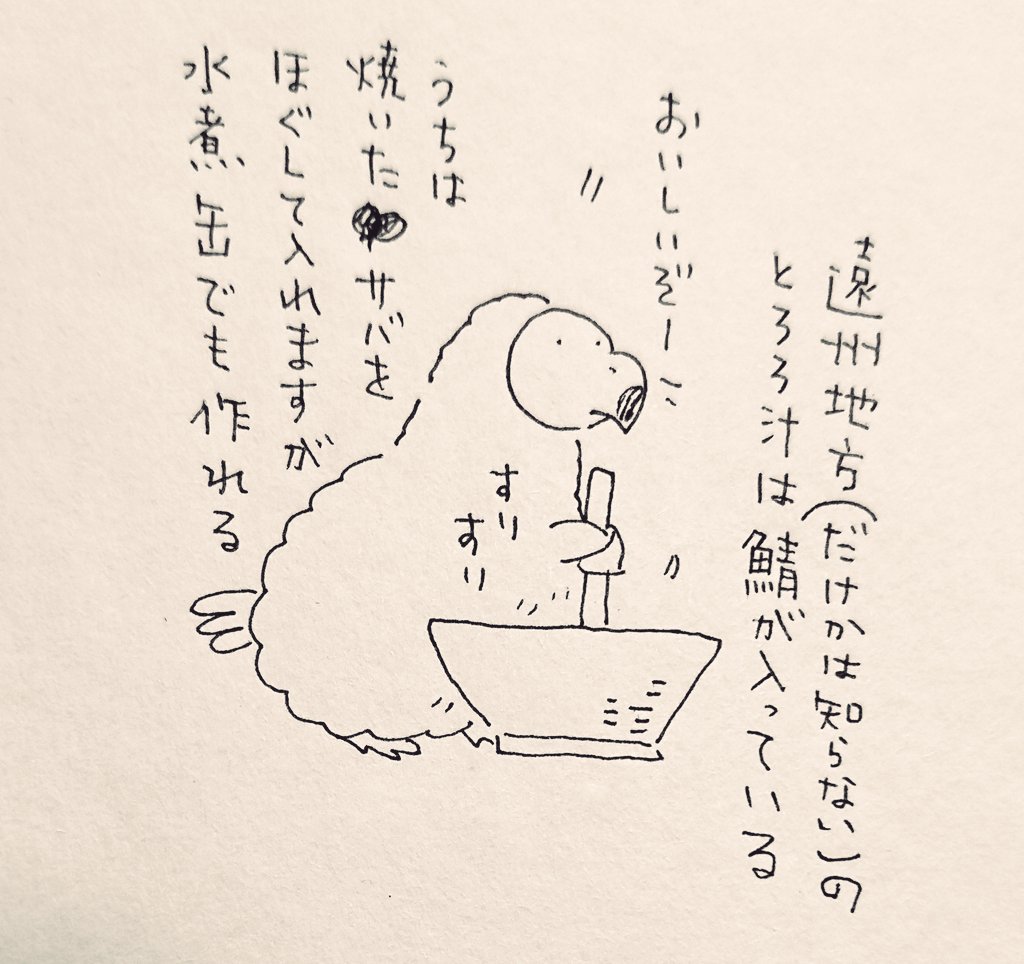 遠州地方(だけかは知らない)の
とろろ汁は鯖が入っている
おいしいぞー
すり
すり
うちは
焼いたサバを
ほぐして入れますが
水煮缶でも作れる